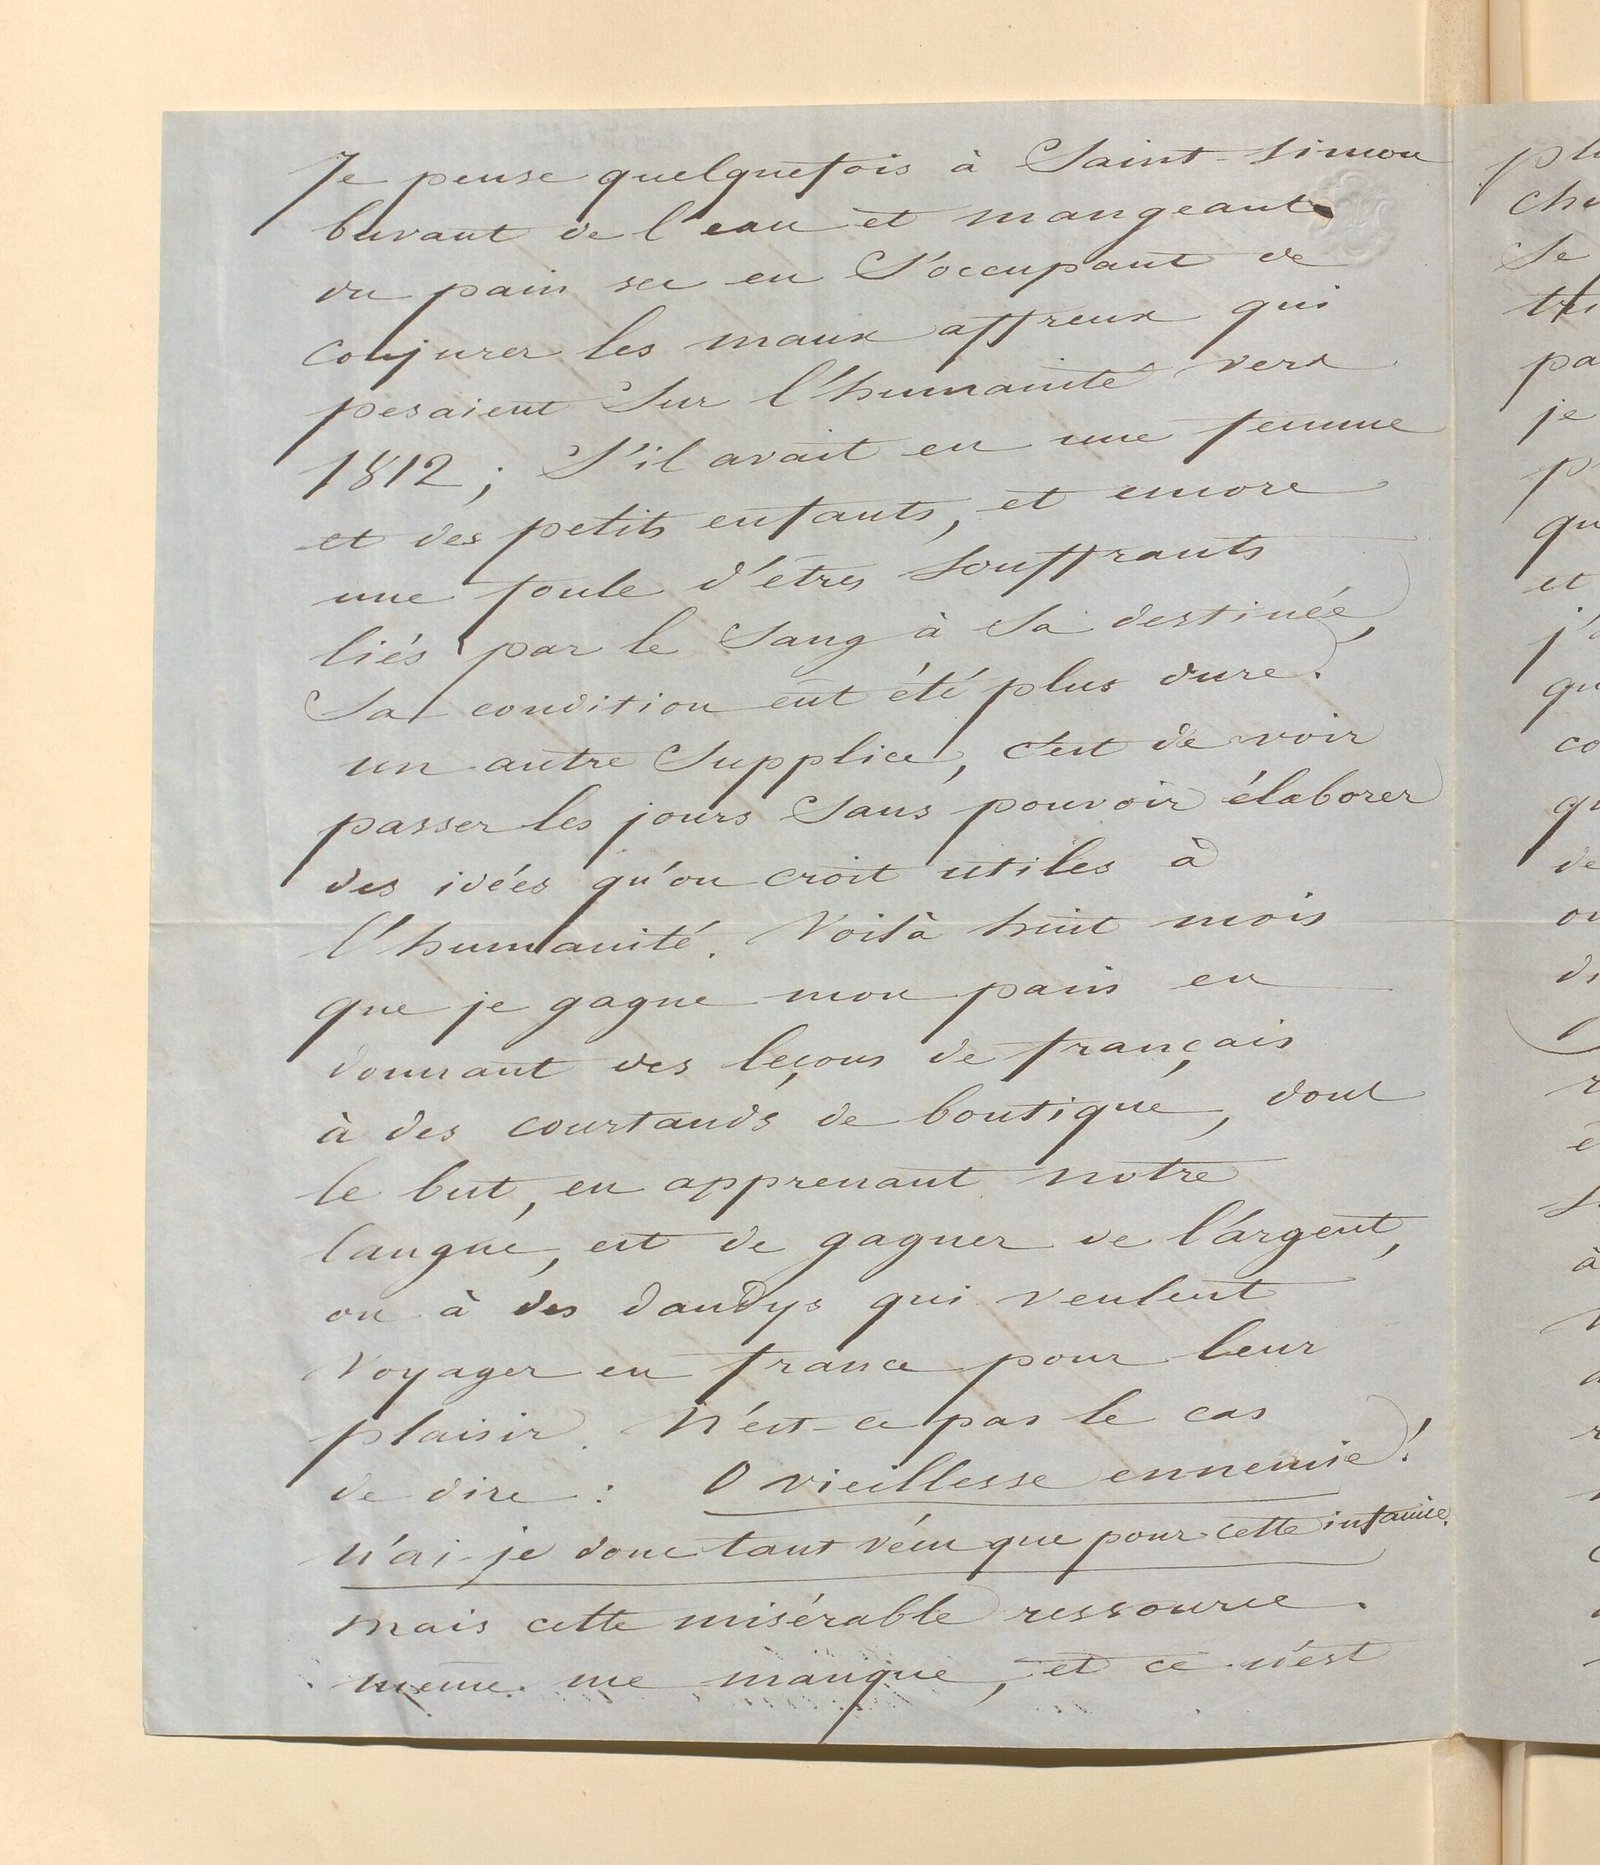 Je pense quelquefois à Saint-Simon
buvant de l'eau et mangeant
du pain sec en s'occupant de
conjurer les maux affreux qui
pesaient sur l'humanité vers
1812 ; s'il avait eu une femme
et des petits enfants, et encore
une foule d'êtres souffrants
liés par le sang à sa destinée,
sa condition eut été plus dure.
un autre supplice, c'est de voir
passer les jours sans pouvoir élaborer
des idées qu'on croit utiles à
l'humanité. Voilà huit mois
que je gagne mon pain en
donnant des leçons de français
à des courtauds de boutique, dont
le but, en apprenant notre
langue, est de gagner de l'argent,
ou à des dandys qui veulent
voyager en france pour leur
plaisir. N'est-ce pas le cas
de dire : O vieillesse ennemie !
n'ai-je donc tant vécu que pour cette infamie.
mais cette misérable ressource
même me manque, et ce n'est
pl
che
se
pa
je
p
qu
et
j'
qu
co
qu
de
ou
à